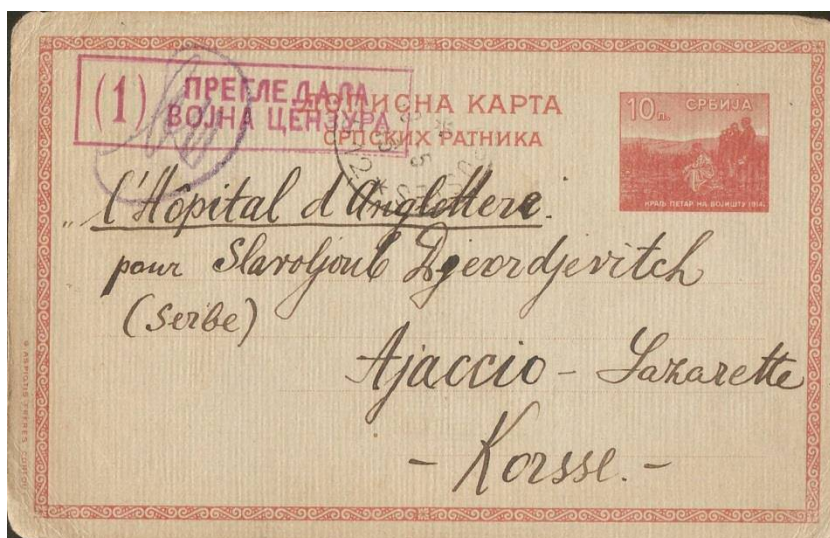 (1) ПРЕГЛЕДАЛА
ВОЈНА ЦЕНЗУРА
ДОПИСНА КАРТА
СРПСКИХ РАТНИКА
10 п. СРБИЈА
КРАЉ ПЕТАР НА БОЈИШТУ 1914.
„l'Hôpital d'Anglettere.
pour Slavoljoub Djeordjevitch
(Serbe)
Ajaccio - Lazarette
- Korsse. -
ASPIOTIS FRÈRES CORFOU